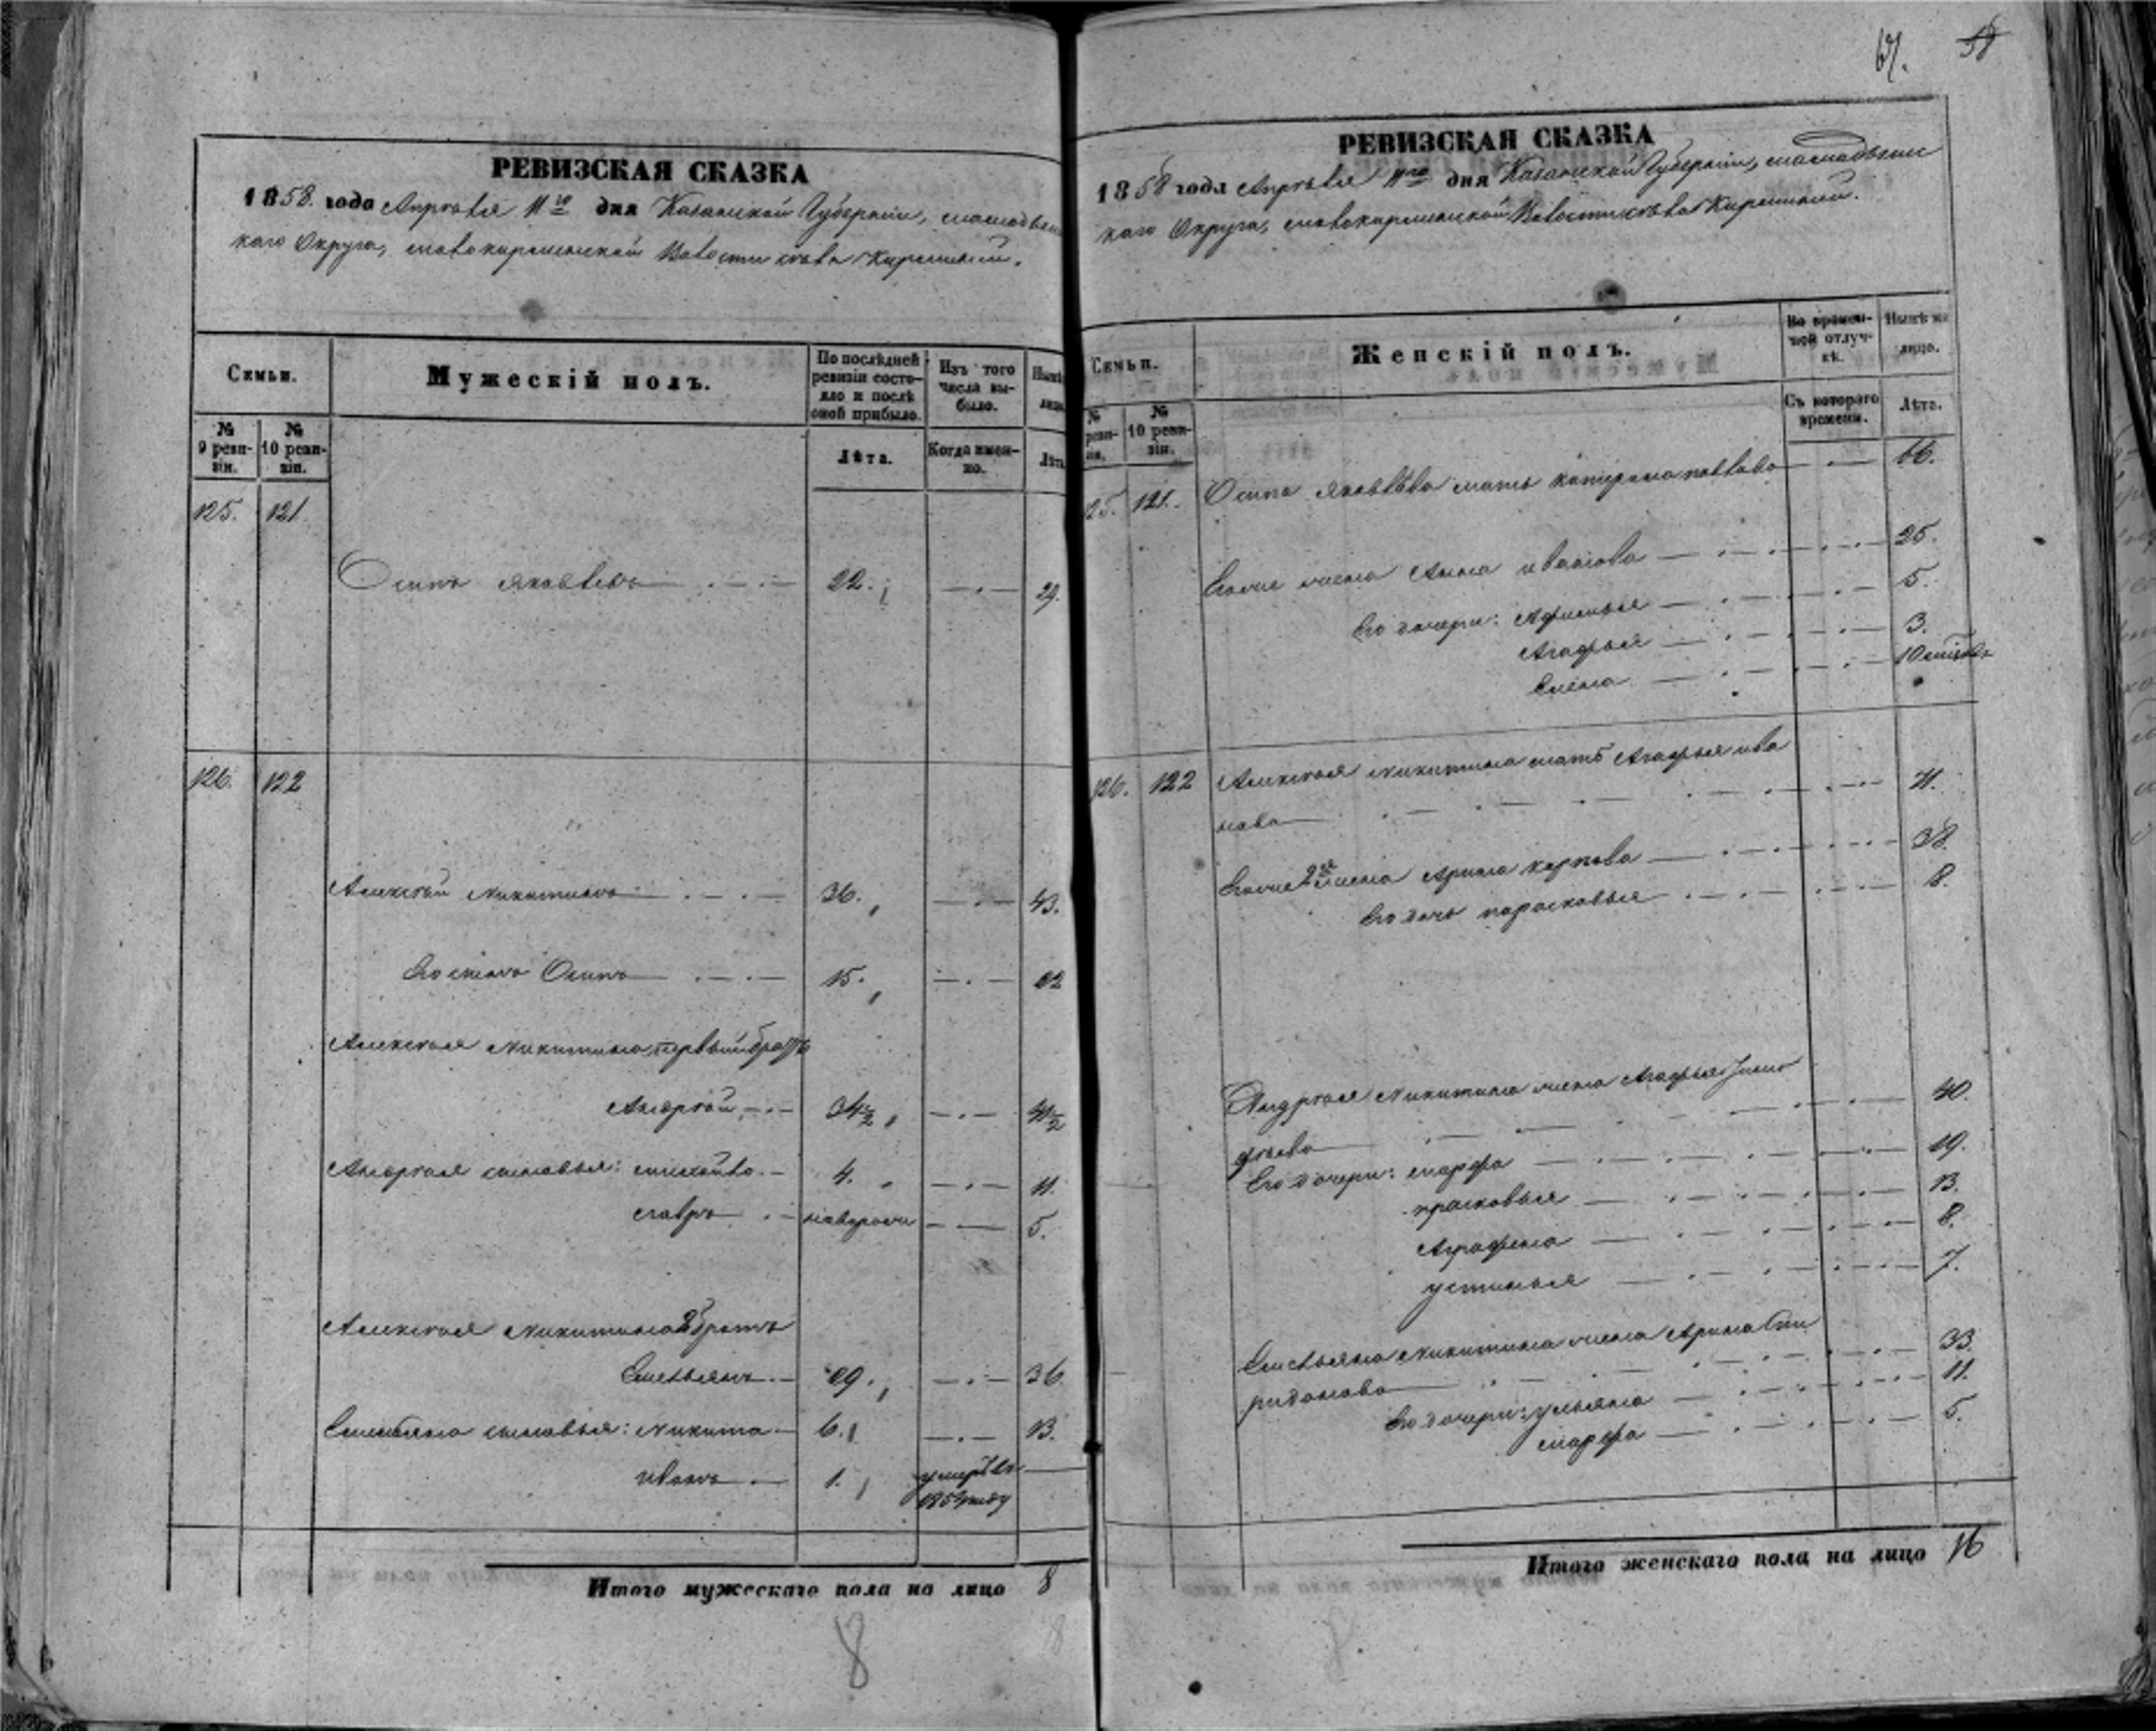 РЕВИЗСКАЯ СКАЗКА
1858. года Апрѣля 11го дня Казанской Губерніи,
каго Округа, Волости села
Семьи.
Мужескій полъ.
По послѣдней ревизіи состояло и послѣ оной прибыло.
Изъ того числа выбыло.
№ 9 ревизіи.
№ 10 ревизіи.
Лѣта.
Когда именно.
Лѣта
125. 121.
Осипъ Яковлевъ 22. 29.
126. 122
Алексѣй Никитинъ 36. 43.
Его сынъ Осипъ 15. 22
Алексѣя Никитина первый братъ
Андрѣй 34½ 41½
Андрѣя сыновья: Михайло 4. 11.
Лавръ 5.
Алексѣя Никитина 2й братъ
Емельянъ 29. 36.
Емельяна сыновья: Никита 6. 13.
Иванъ 1. умеръ въ
1854 году
Итого мужескаго пола на лицо 8
8
58
РЕВИЗСКАЯ СКАЗКА
1858 года Апрѣля 11го дня Казанской Губерніи,
каго Округа, Волости села
Семьи.
Женскій полъ.
Во временной отлучкѣ.
Нынѣ на лицо.
№ 10 ревизіи.
Съ котораго времени.
Лѣта.
125. 121. Осипа Яковлева мать Катерина Павлова 66.
Его же жена Анна Иванова 25.
Его дочери: Афимья 5.
Агафья 3.
Елена 10
126. 122 Алексѣя Никитина мать Агафья Ива
нова 71.
Его же 2я жена Арина Карпова 38.
Его дочь Парасковья 8.
Андрѣя Никитина жена Агафья Тимо
фѣева 40.
Его дочери: Марфа 19.
Прасковья 13.
Аграфена 8.
Устинья 7.
Емельяна Никитина жена Арина Спи
ридонова 33.
Его дочери: Ульяна 11.
Марфа 5.
Итого женскаго пола на лицо 16